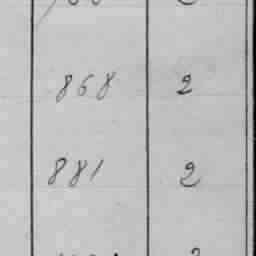 868 2
881 2